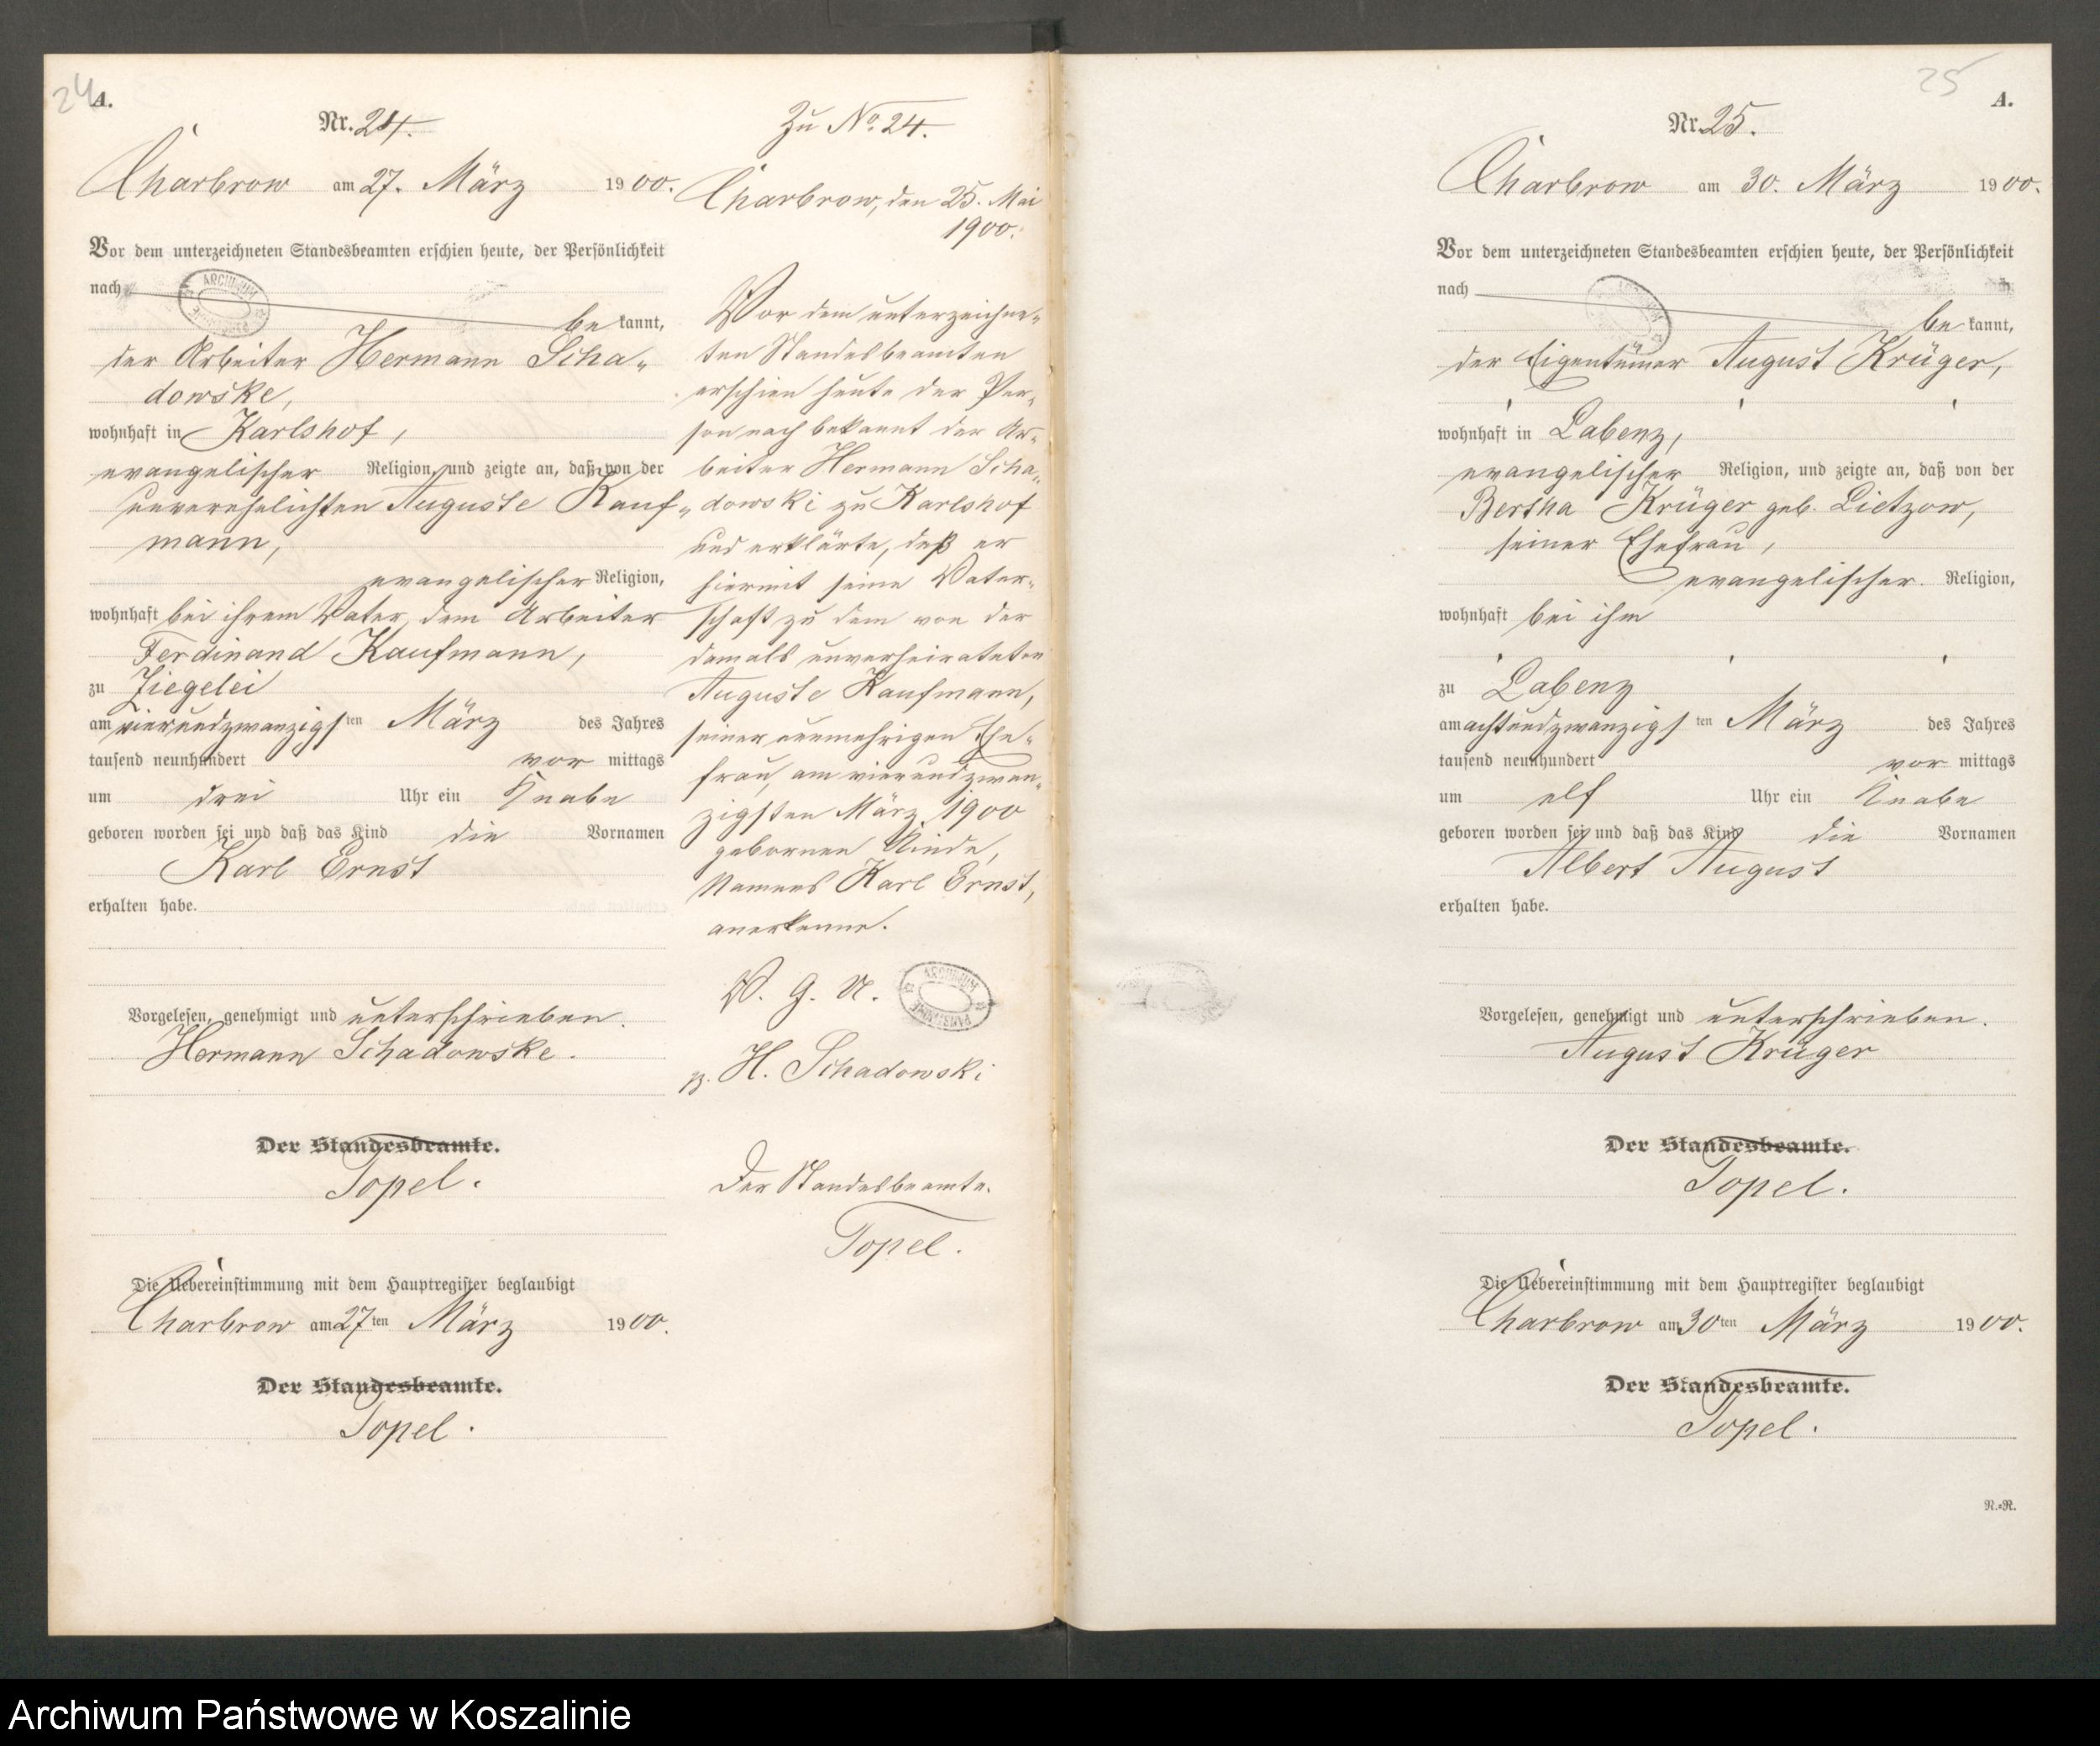 24
A.
Nr. 24.
Charbrow am 27. März 1900.
Vor dem unterzeichneten Standesbeamten erschien heute, der Persönlichkeit
nach
be kannt,
der Arbeiter Hermann Scha„
dowske,
wohnhaft in Karlshof,
evangelischer Religion, und zeigte an, daß von der
unverehelichten Auguste Kauf„
mann,
evangelischer Religion,
wohnhaft bei ihrem Vater, dem Arbeiter
Ferdinand Kaufmann,
zu Ziegelei
am vierundzwanzigsten März des Jahres
tausend neunhundert vor mittags
um drei Uhr ein Knabe
geboren worden sei und daß das Kind die Vornamen
Karl Ernst
erhalten habe.
Vorgelesen, genehmigt und unterschrieben.
Hermann Schadowske.
Der Standesbeamte.
Topel.
Die Uebereinstimmung mit dem Hauptregister beglaubigt
Charbrow am 27ten März 1900.
Der Standesbeamte.
Topel.
Zu No. 24.
Charbrow, den 25. Mai
1900.
Vor dem unterzeichne„
ten Standesbeamten
erschien heute der Per„
son nach bekannt der Ar„
beiter Hermann Scha„
dowski zu Karlshof
und erklärte, daß er
hiermit seine Vater„
schaft zu dem von der
damals unverheirateten
Auguste Kaufmann,
seiner nunmehrigen Ehe„
frau, am vierundzwan„
zigsten März 1900
gebornen Kinde,
Namens Karl Ernst,
anerkenne.
V. g. U.
ARCHIWUM PAŃSTWOWE
H. Schadowski
Der Standesbeamte.
Topel.
25
A.
Nr. 25.
Charbrow am 30. März 1900.
Vor dem unterzeichneten Standesbeamten erschien heute, der Persönlichkeit
nach
be kannt,
der Eigentümer August Krüger,
wohnhaft in Labenz,
evangelischer Religion, und zeigte an, daß von der
Bertha Krüger geb. Lietzow,
seiner Ehefrau,
evangelischer. Religion,
wohnhaft bei ihm
zu Labenz
am achtundzwanzigsten März des Jahres
tausend neunhundert vor mittags
um elf Uhr ein Knabe
geboren worden sei und daß das Kind die Vornamen
Albert August
erhalten habe.
Vorgelesen, genehmigt und unterschrieben.
August Krüger
Der Standesbeamte.
Topel.
Die Uebereinstimmung mit dem Hauptregister beglaubigt
Charbrow am 30ten März 1900.
Der Standesbeamte.
Topel.
N.=R.
Archiwum Państwowe w Koszalinie